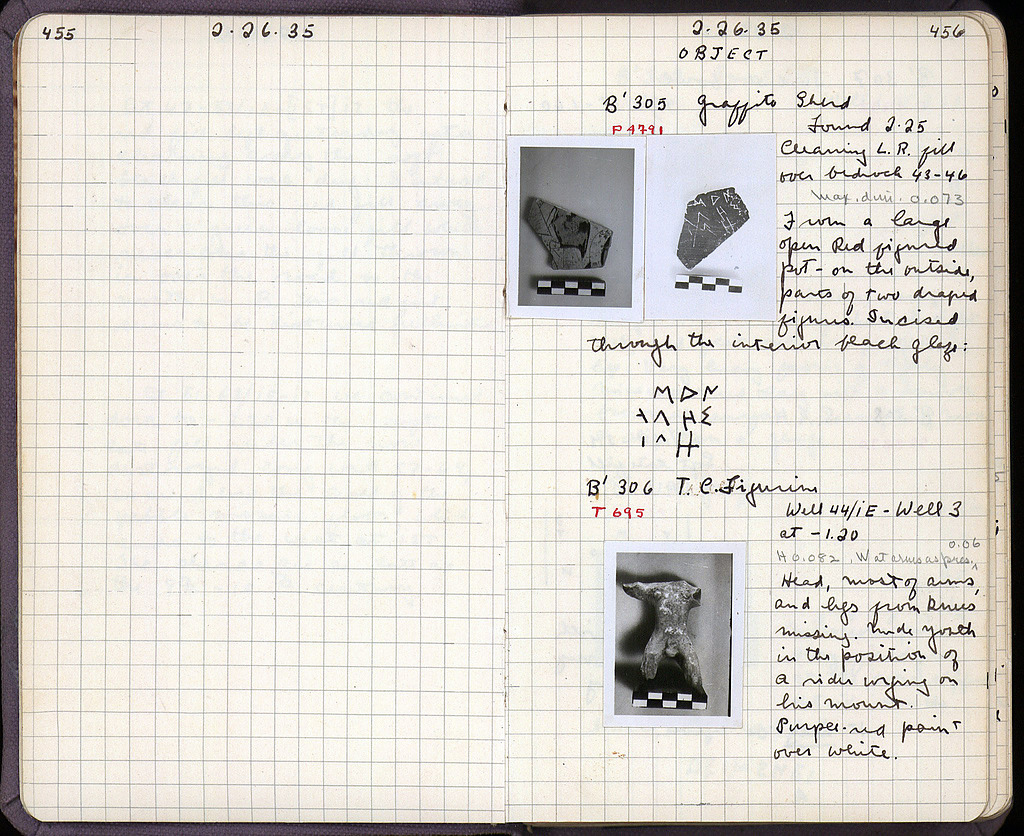 455
2·26·35
2·26·35
456
OBJECT
B' 305 Graffito Sherd
P 4791
Found 2·25
Cleaning L. R. fill
over bedrock 43-46
Max. dim. 0.073
From a large
open Red figured
pot - on the outside,
parts of two draped
figures. Incised
through the interior black glaze:
B' 306 T. C. Figurine
T 695
Well 44/ΙΕ - Well 3
at -1.20
0.06
H 0.082, W at arms as pres.
Head, most of arms,
and legs from knees
missing. Nude youth
in the position of
a rider urging on
his mount.
Purple-red paint
over white.